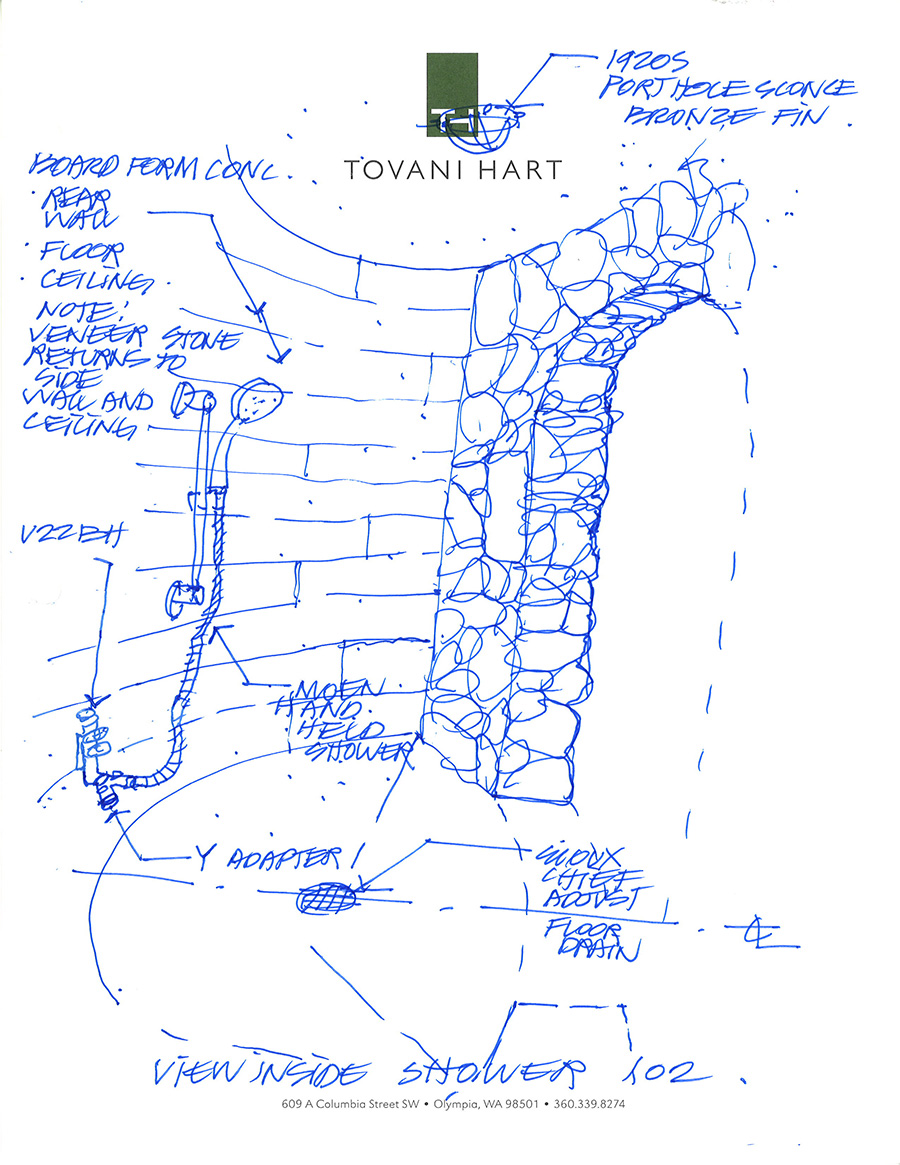 1920S
PORTHOLE SCONCE
BRONZE FIN.
TH
TOVANI HART
BOARD FORM CONC.
REAR
WALL
FLOOR
CEILING.
NOTE:
VENEER STONE
RETURNS TO
SIDE
WALL AND
CEILING
V22BH
MOEN
HAND.
HELD
SHOWER
Y ADAPTER!
SIOUX
CHIEF
ADJUST
FLOOR
DRAIN
VIEW INSIDE SHOWER 102.
609 A Columbia Street SW • Olympia, WA 98501 • 360.339.8274